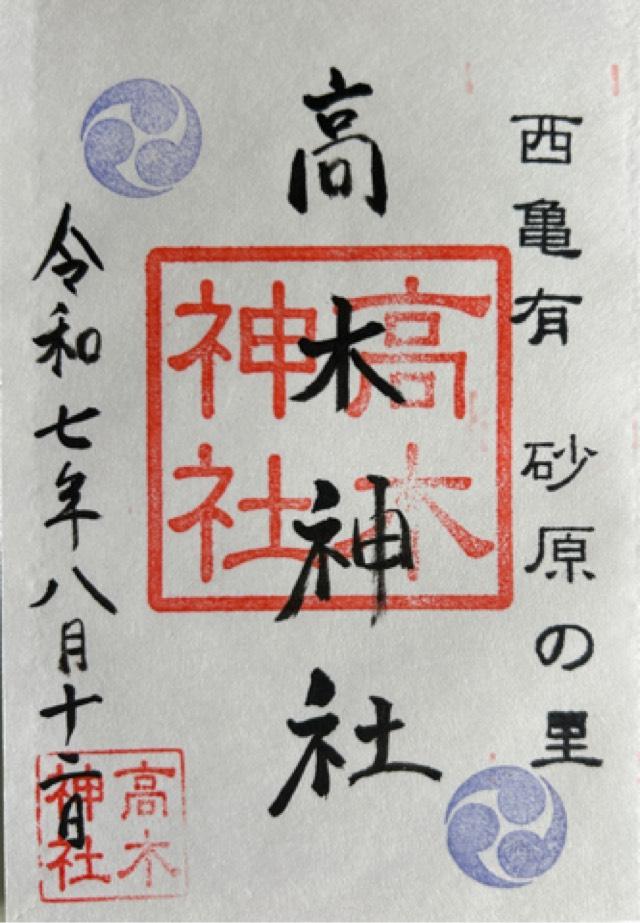 西亀有 砂原の里
高木神社
高木神社
令和七年八月十二日
高木神社